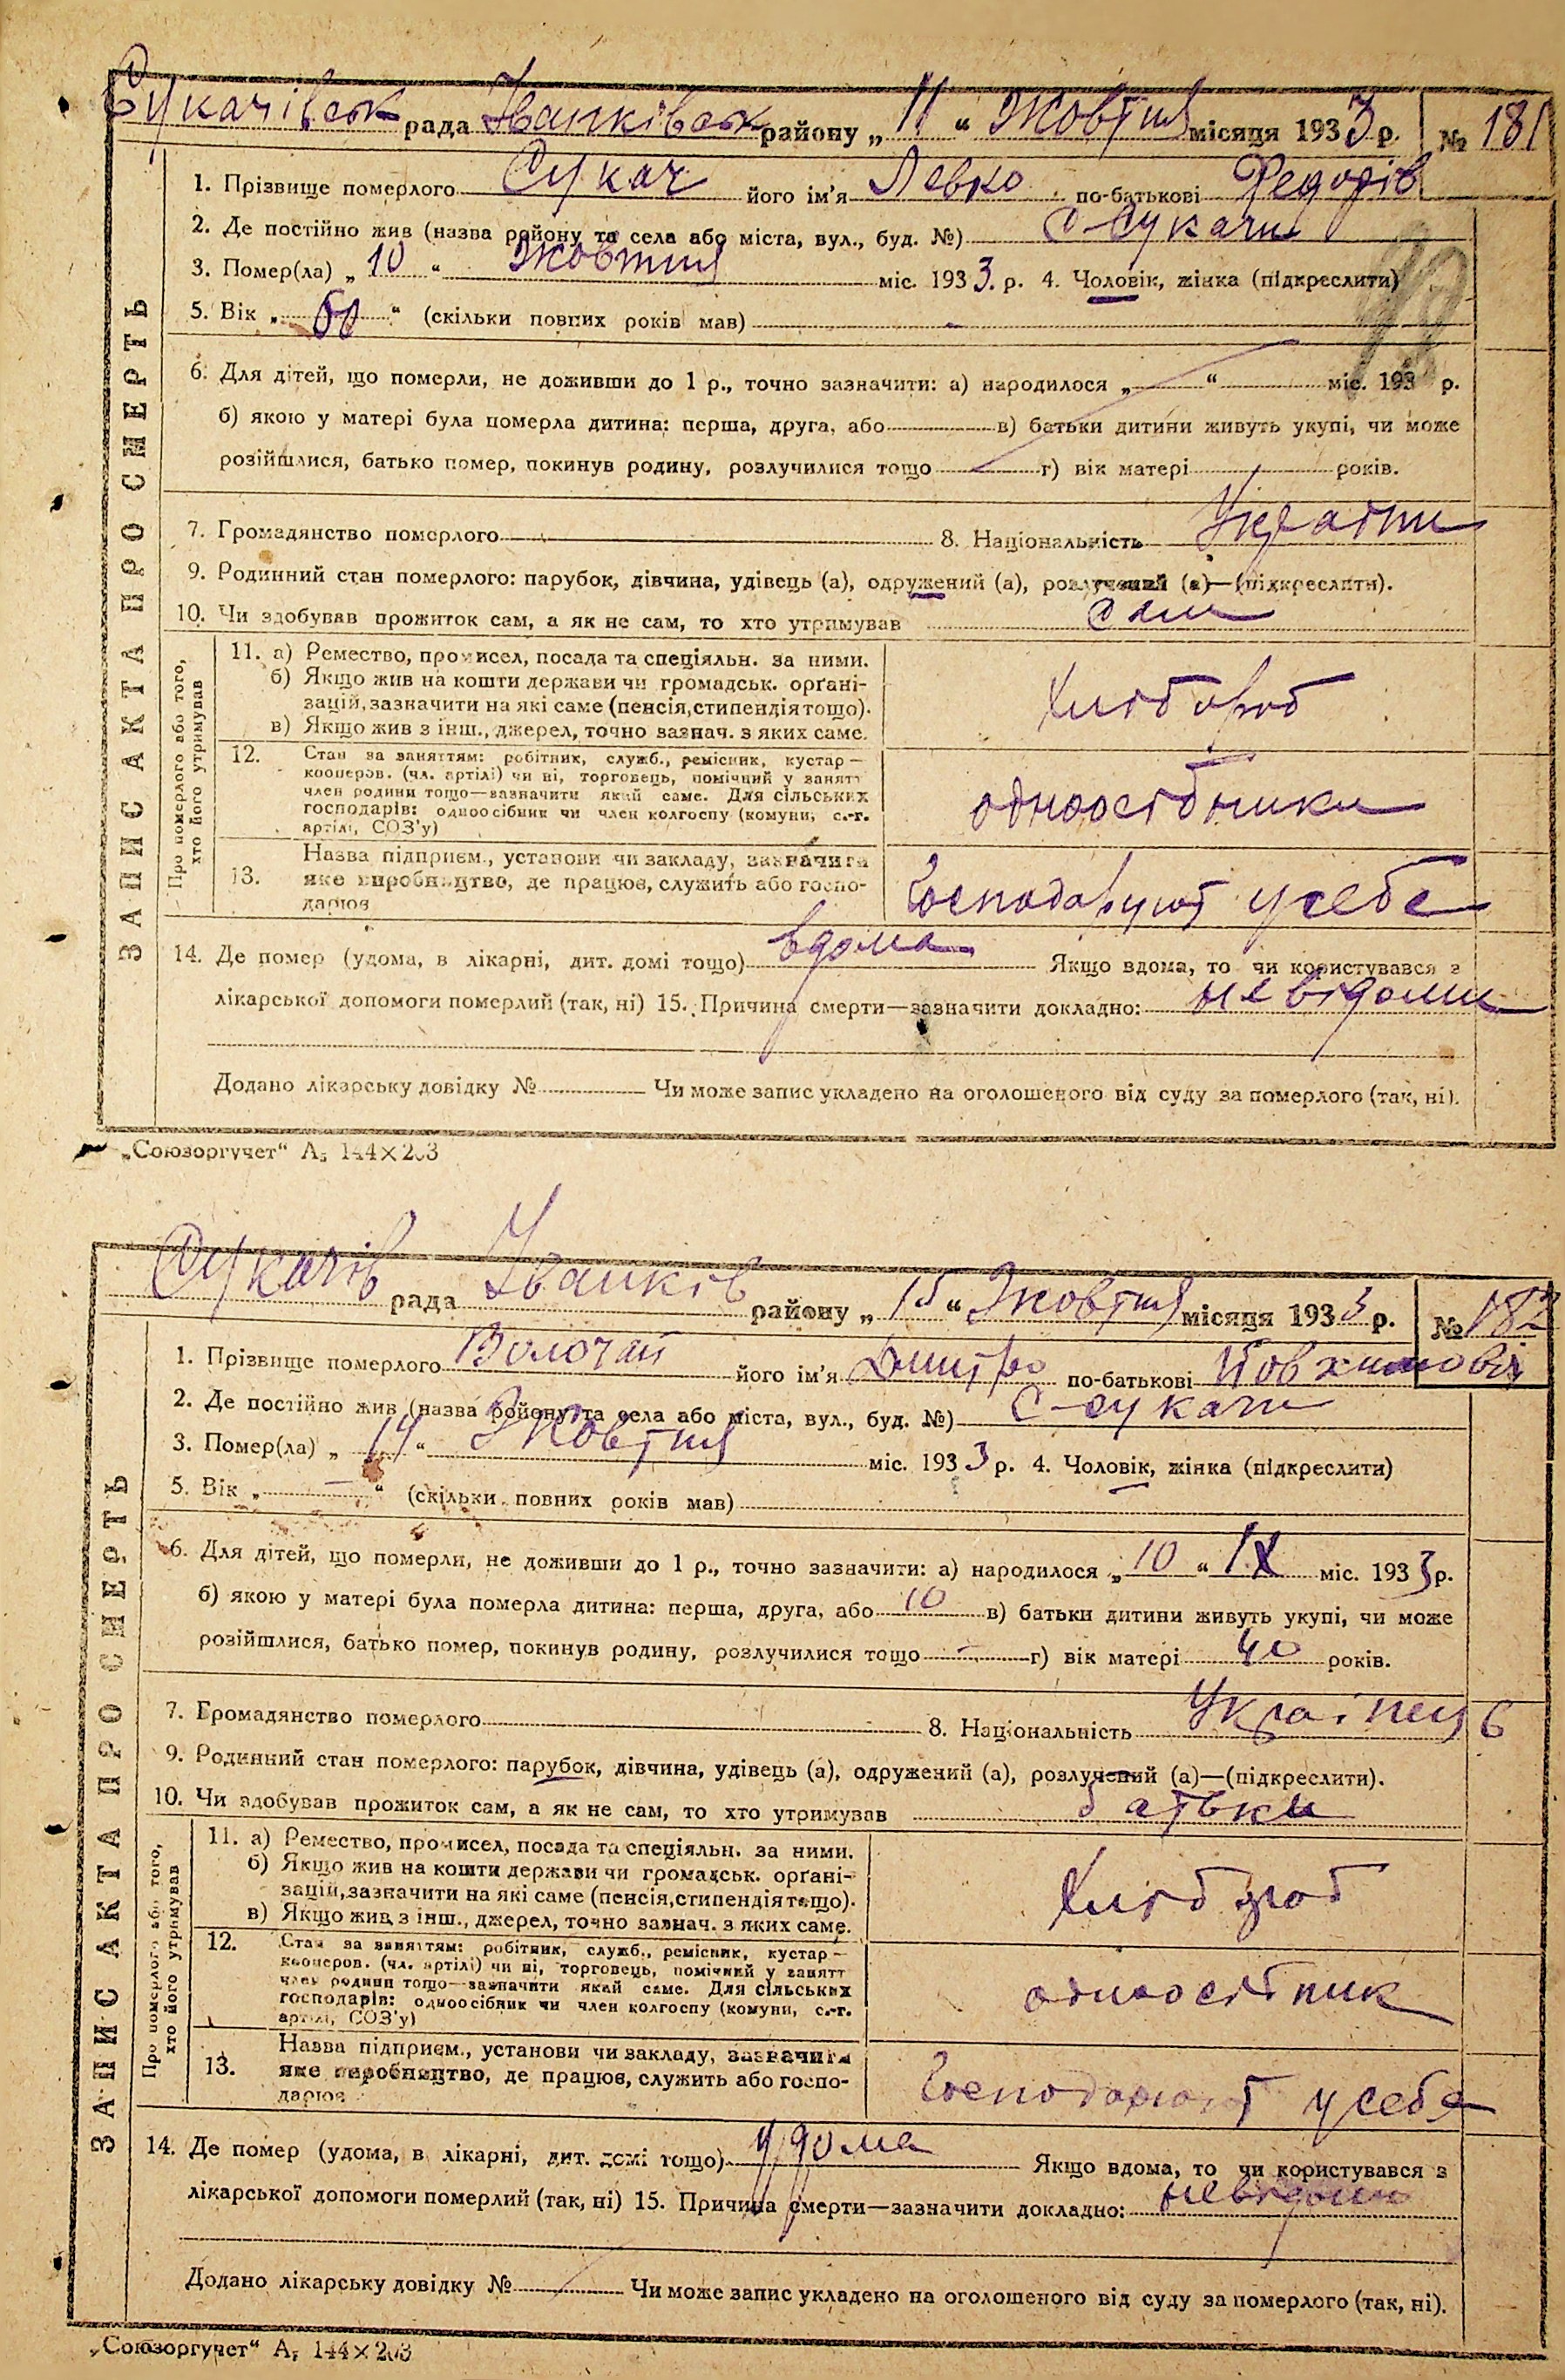 Сукачівськ рада Іванківськ району „11“ Жовтня місяця 1933 р. № 181
1. Прізвище померлого Сукач його ім’я Левко по-батькові Федорів
2. Де постійно жив (назва району та села або міста, вул., буд. №) с-Сукачи
3. Помер(ла) „10“ Жовтня міс. 1933. р. 4. Чоловік, жінка (підкреслити)
5. Вік „ “ (скільки повних років мав) -
6. Для дітей, що померли, не доживши до 1 р., точно зазначити: а) народилося „ “ міс. 193 р.
б) якою у матері була померла дитина: перша, друга, або в) батьки дитини живуть укупі, чи може
розійшлися, батько помер, покинув родину, розлучилися тощо г) вік матері років.
7. Громадянство померлого 8. Національність
9. Родинний стан померлого: парубок, дівчина, удівець (а), одружений (а), розлучений (а)—(підкреслити).
10. Чи здобував прожиток сам, а як не сам, то хто утримував сам
ЗАПИС АКТА ПРО СМЕРТЬ
Про померлого або того,
хто його утримував
11. а) Ремество, промисел, посада та спеціяльн. за ними.
б) Якщо жив на кошти держави чи громадськ. орґані-
зацій, зазначити на які саме (пенсія, стипендія тощо).
в) Якщо жив з інш., джерел, точно зазнач. з яких саме.
Хлібороб
12. Стан за заняттям: робітник, служб., ремісник, кустар —
кооперов. (чл. артілі) чи ні, торговець, помічний у занятт
член родини тощо—зазначити який саме. Для сільських
господарів: одноосібник чи член колгоспу (комуни, с.-г.
артілі, СОЗ’у)
одноосібники
13. Назва підприєм., установи чи закладу, зазначити
яке виробництво, де працює, служить або госпо-
дарює
Господарують у себе
14. Де помер (удома, в лікарні, дит. домі тощо) вдома Якщо вдома, то чи користувався з
лікарської допомоги померлий (так, ні) 15. Причина смерти—зазначити докладно: невідоми
Додано лікарську довідку № Чи може запис укладено на оголошеного від суду за померлого (так, ні).
„Союзоргучет“ А₅ 144×203
Сукачів рада Іванків району „15“ Жовтня місяця 1933 р. № 182
1. Прізвище померлого Волочай його ім’я Дмитро по-батькові
2. Де постійно жив (назва району та села або міста, вул., буд. №) с-сукачи
3. Помер(ла) „14“ Жовтня міс. 1933 р. 4. Чоловік, жінка (підкреслити)
5. Вік „—“ (скільки повних років мав)
6. Для дітей, що померли, не доживши до 1 р., точно зазначити: а) народилося „10“ IX міс. 1933 р.
б) якою у матері була померла дитина: перша, друга, або 10 в) батьки дитини живуть укупі, чи може
розійшлися, батько помер, покинув родину, розлучилися тощо - г) вік матері 40 років.
7. Громадянство померлого 8. Національність Українець
9. Родинний стан померлого: парубок, дівчина, удівець (а), одружений (а), розлучений (а)—(підкреслити).
10. Чи здобував прожиток сам, а як не сам, то хто утримував батьки
ЗАПИС АКТА ПРО СМЕРТЬ
Про померлого або того,
хто його утримував
11. а) Ремество, промисел, посада та спеціяльн. за ними.
б) Якщо жив на кошти держави чи громадськ. орґані-
зацій, зазначити на які саме (пенсія, стипендія тощо).
в) Якщо жив з інш., джерел, точно зазнач. з яких саме.
Хлібороб
12. Стан за заняттям: робітник, служб., ремісник, кустар —
кооперов. (чл. артілі) чи ні, торговець, помічний у занятт
член родини тощо—зазначити який саме. Для сільських
господарів: одноосібник чи член колгоспу (комуни, с.-г.
артілі, СОЗ’у)
одноосібник
13. Назва підприєм., установи чи закладу, зазначити
яке виробництво, де працює, служить або госпо-
дарює
Господарюют у себе
14. Де помер (удома, в лікарні, дит. домі тощо) удома Якщо вдома, то чи користувався з
лікарської допомоги померлий (так, ні) 15. Причина смерти—зазначити докладно: невідоми
Додано лікарську довідку № Чи може запис укладено на оголошеного від суду за померлого (так, ні).
„Союзоргучет“ А₅ 144×203